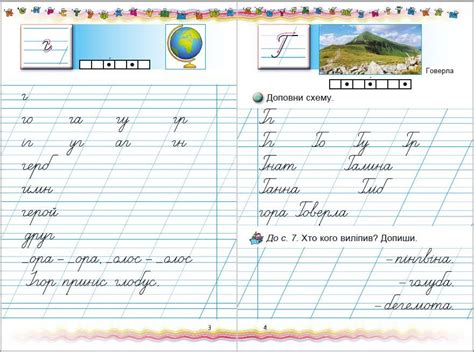 г
г
го га гу гр
іг уг аг гн
герб
гімн
герой
друг
_ора – _ора, _олос – _олос
Ігор приніс глобус.
3
Г
Говерла
Доповни схему.
Гг
Гг Го Гу Гр
Гнат Галина
Ганна Гліб
гора Говерла
До с. 7. Хто кого виліпив? Допиши.
– пінгвіна.
– голуба.
– бегемота.
4